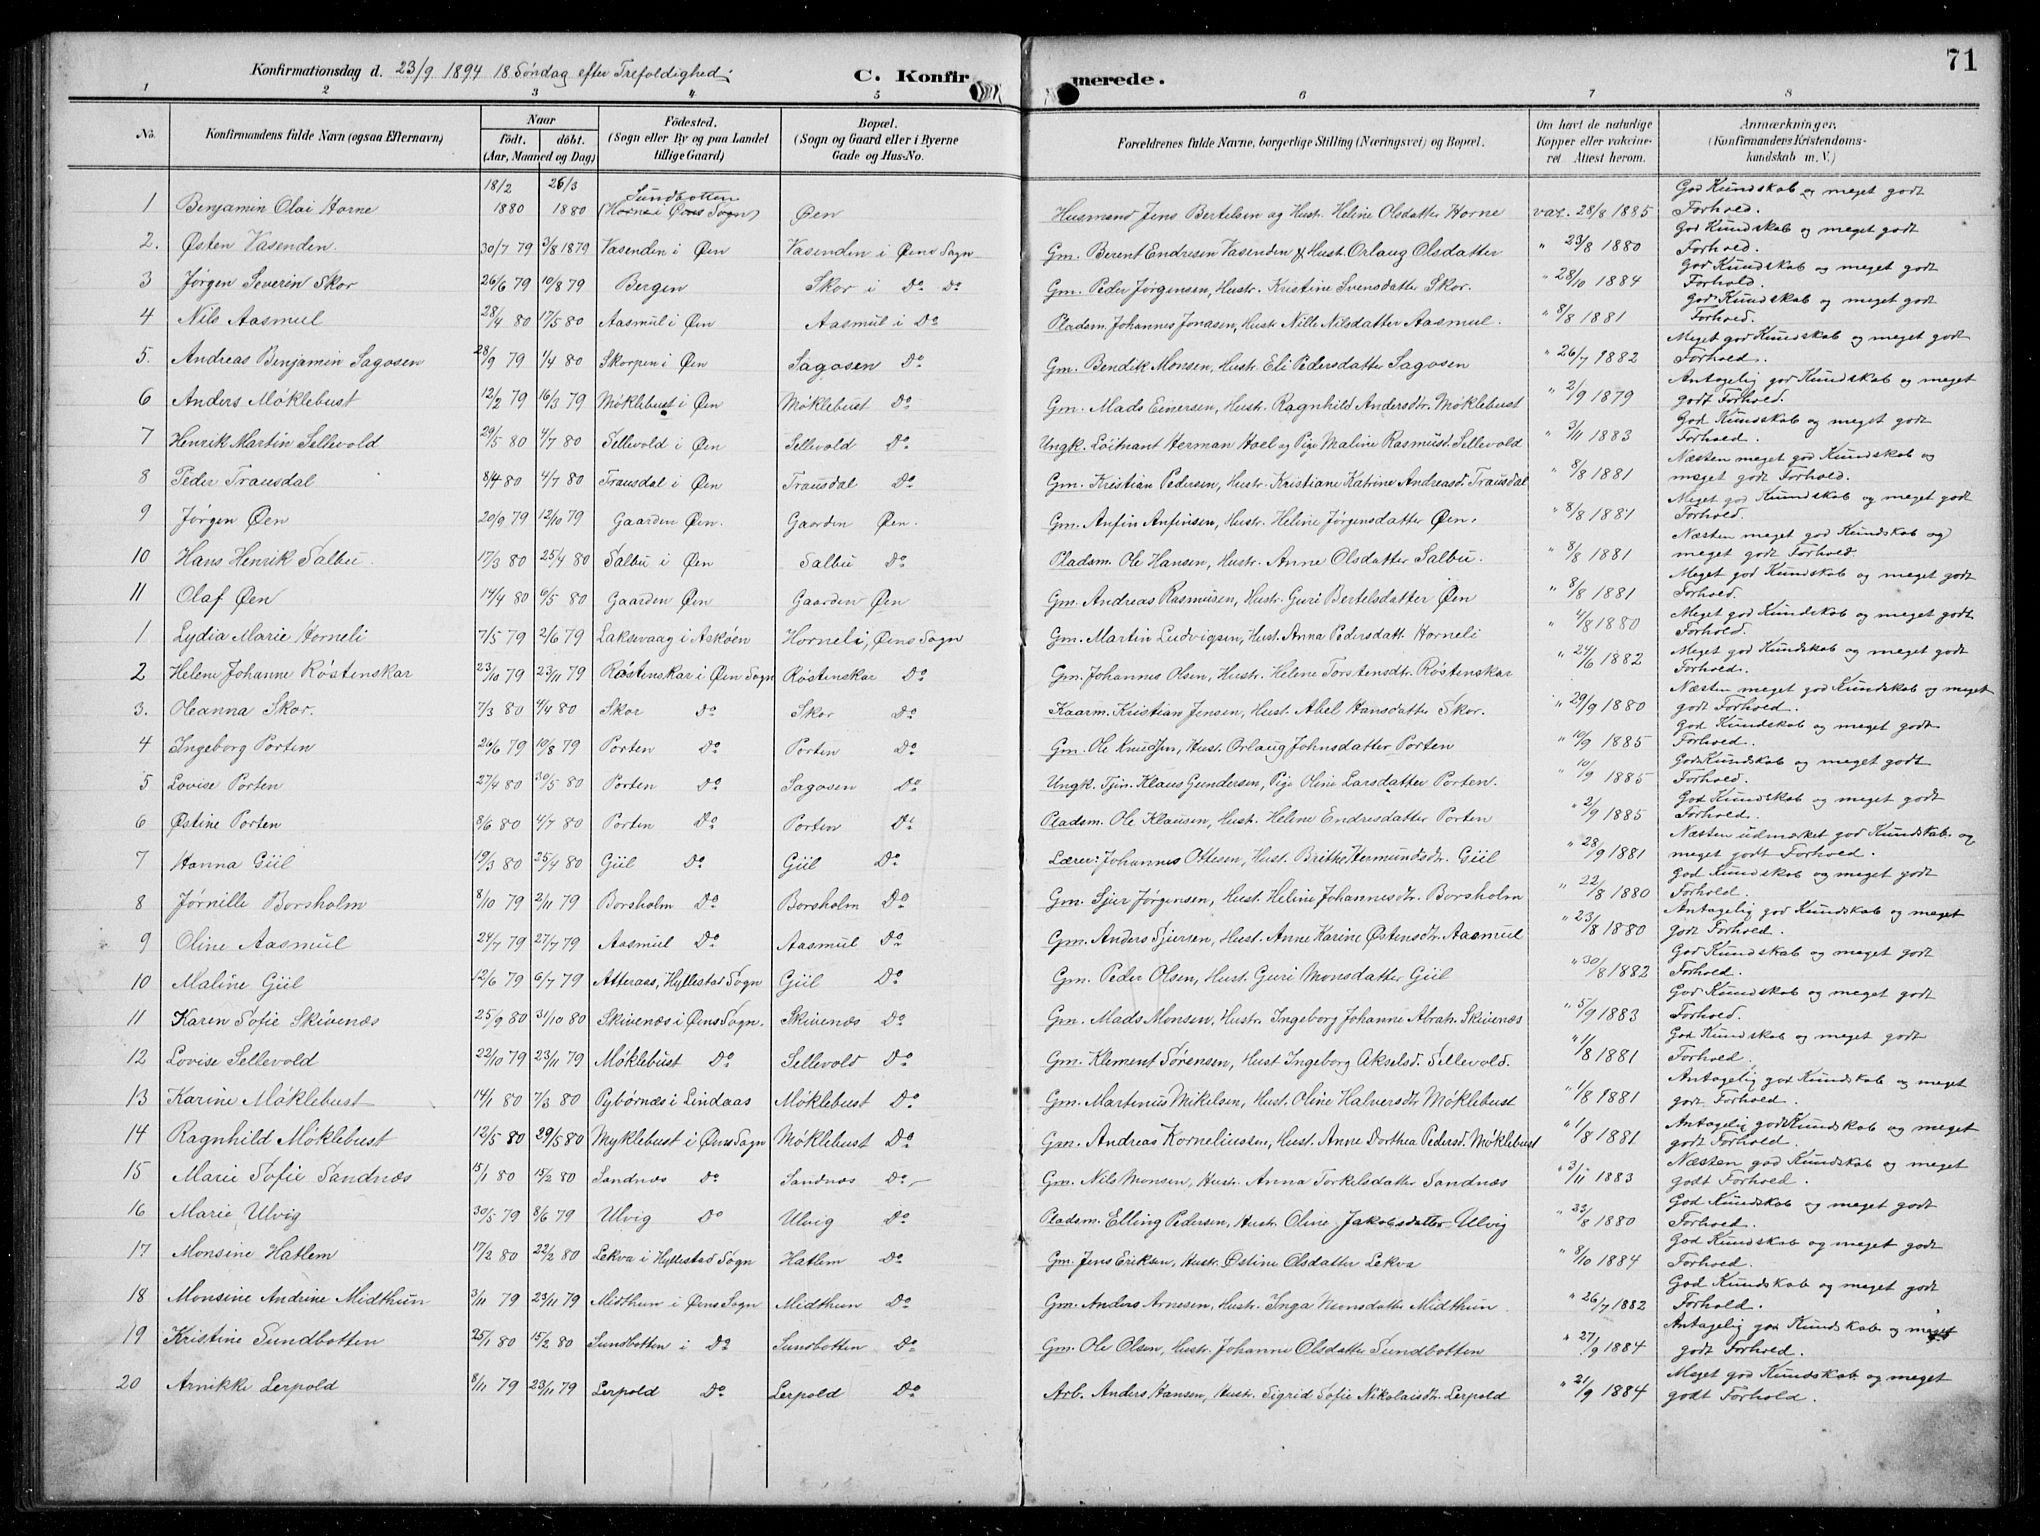 71
Konfirmationsdag d. 23/9 1894 18 Søndag efter Trefoldighed.
C. Konfirmerede.
1 2 3 4 5 6 7 8
No. Konfirmandens fulde Navn (ogsaa Efternavn)
Naar født. døbt. (Aar, Maaned og Dag)
Fødested. (Sogn eller By og paa Landet tillige Gaard)
Bopæl. (Sogn og Gaard eller i Byerne Gade og Hus-No.
Forældrenes fulde Navne, borgerlige Stilling (Næringsvei) og Bopæl.
Om havt de naturlige Kopper eller vakcineret. Attest herom.
Anmærkninger. (Konfirmandens Kristendomskundskab m. V.)
1 Benjamin Olai Horne 18/2 1880 26/3 1880 Sundbotten (Horne i Øens Sogn) Øen Husmand Jens Bertelsen og Hust. Helene Olsdatter Horne vac. 28/8 1885 God Kundskab og meget godt Forhold.
2. Østen Vasenden. 30/7 79 3/8 1879 Vasenden i Øen Vasenden i Øens Sogn Gm. Berent Endresen Vasenden & Hust. Orlaug Olsdatter " 23/8 1880 God Kundskab og meget godt Forhold.
3 Jørgen Severin Skor 26/6 79 10/8 79 Bergen Skor i Do Do Gm. Peder Jørgensen, Hustr. Kristine Svensdatter Skor. " 28/10 1884 God Kundskab og meget godt Forhold.
4 Nils Aasmul 28/4 80 17/5 80 Aasmul i Øen Aasmul i Do Pladsm. Johannes Jonasen, Hustr Nille Nilsdatter Aasmul. " 8/8 1881 God Kundskab og meget godt Forhold.
5. Andreas Benjamin Sagosen 28/9 79 1/4 80 Skorpen i Øen Sagosen Do Gm. Bendik Monsen, Hustr. Eli Pedersdatter Sagosen " 26/7 1882 Meget god Kundskab og meget godt Forhold.
6 Anders Møklebust 12/2 79 16/3 79 Møklebust i Øen Møklebust Do Gm. Mads Einersen, Hustr. Ragnhild Andersdtr. Møklebust " 2/9 1879 Antagelig god Kundskab og meget godt Forhold.
7 Henrik Martin Sellevold 29/5 80 4/7 80 Sellevold i Øen Sellevold Do Ungk. Løitnant Herman Hoel og Pige Maline Rasmusd. Sellevold " 3/11 1883 God Kundskab og meget godt Forhold.
8 Peder Trausdal 8/4 80 4/7 80 Trausdal i Øen Trausdal Do Gm. Kristian Pedersen, Hustr. Kristiane Katrine Andreasd. Trausdal " 8/8 1881 Næsten meget god Kundskab og meget godt Forhold.
9 Jørgen Øen 20/9 79 12/10 79 Gaarden Øen. Gaarden Øen. Gm. Anfin Anfinsen, Hustr. Helene Jørgensdatter Øen. " 8/8 1881 Meget god Kundskab og meget godt Forhold.
10 Hans Henrik Salbu. 17/3 80 25/4 80 Salbu i Øen Salbu Do Pladsm. Ole Hansen, Hustr. Anne Olsdatter Salbu. " 8/8 1881 Næsten meget god Kundskab og meget godt Forhold.
11 Olaf Øen 14/4 80 6/5 80 Gaarden Øen Gaarden Øen Gm. Andreas Rasmusen, Hustr. Guri Bertelsdatter Øen " 8/8 1881 Meget god Kundskab og meget godt Forhold.
1 Lydia Marie Horneli 7/5 79 2/6 79 Laksvaag i Askøen Horneli, Øens Sogn Gm. Martin Ludvigsen, Hust. Anna Pedersdatt. Horneli " 4/8 1880 Meget god Kundskab og meget godt Forhold.
2 Helene Johanne Røstenskar 23/10 79 23/11 79 Røstenskar i Øen Sogn Røstenskar Do Gm. Johannes Olsen, Hustr. Helene Torstensdtr. Røstenskar " 24/6 1882 Meget god Kundskab og meget godt Forhold.
3. Oleanna Skor. 7/3 80 4/4 80 Skor Do Skor Do Kaarm. Kristian Jensen, Hust. Abel Hansdatter Skor. " 29/9 1880 Næsten meget god Kundskab og meget godt Forhold.
4 Ingeborg Porten 26/6 79 10/8 79 Porten Do Porten Do Gm. Ole Knudsen, Hust. Orlaug Johnsdatter Porten " 10/9 1885 God Kundskab og meget godt Forhold.
5 Lovise Porten 27/4 80 30/5 80 Porten Do Sagosen Do Ungk. Tjen. Klaus Gundersen, Pige Oline Larsdatter Porten. " 10/9 1885 God Kundskab og meget godt Forhold.
6 Østine Porten 8/6 80 4/7 80 Porten Do Porten Do Pladsm. Ole Klausen, Hust. Helene Endresdatter Porten " 2/9 1885 God Kundskab og meget godt Forhold.
7 Hanna Giil 19/3 80 25/4 80 Giil Do Giil Do Lærer Johannes Ottesen, Hust. Brithe Hermundsdtr. Giil " 28/9 1881 Næsten udmerket god Kundskab og meget godt Forhold.
8 Jørnille Borsholm 8/10 79 2/11 79 Borsholm Do Borsholm Do Gm. Sjur Jørgensen, Hust. Heline Johannesdtr. Borsholm " 22/8 1880 God Kundskab og meget godt Forhold.
9 Oline Aasmul 24/7 79 27/7 79 Aasmul Do Aasmul Do Gm. Anders Sjursen, Hust. Anne Karine Østensdtr. Aasmul " 23/8 1880 Antagelig god Kundskab og meget godt Forhold.
10 Maline Giil 12/6 79 6/7 79 Atteraas, Hyllestad Sogn Giil Do Gm. Peder Olsen, Hust. Guri Monsdatter Giil " 30/8 1882 God Kundskab og meget godt Forhold.
11 Karen Sofie Skivenæs 25/9 80 31/10 80 Skivenæs i Øens Sogn. Skivenæs Do Gm. Mads Monsen, Hustr. Ingeborg Johanne Abrah. Skivenæs " 5/9 1883 God Kundskab og meget godt Forhold.
12 Lovise Sellevold 22/10 79 23/11 79 Møklebust Do Sellevold Do Gm. Klement Sørensen, Hust Ingeborg Akselsd. Sellevold. " 1/8 1881 God Kundskab og meget godt Forhold.
13 Karine Møklebust 14/1 80 7/3 80 Pybørnæs i Lindaas Møklebust Do Gm. Martinus Mikelsen, Hust. Oline Halversdtr Møklebust " 1/8 1881 Antagelig god Kundskab og meget godt Forhold.
14 Ragnhild Møklebust 12/5 80 29/5 80 Myklebust i Øens Sogn Møklebust Do Gm. Andreas Korneliussen, Hust. Anne Dorthea Pedersd. Møklebust " 1/8 1881 Antagelig god Kundskab og meget godt Forhold.
15 Marie Sofie Sandnæs 15/1 80 15/2 80 Sandnæs Do Sandnæs Do Gm. Nils Monsen, Hustr. Anna Torkelsdatter Sandnæs " 3/11 1883 Næsten god Kundskab og meget godt Forhold.
16 Marie Ulvig 30/5 79 8/6 79 Ulvig Do Ulvig Do Pladsm. Elling Pedersen, Hustr. Oline Jakobsdatter Ulvig " 23/8 1880 God Kundskab og meget godt Forhold.
17 Monsine Hatlem 17/2 80 22/2 80 Lekva i Hyllestad Sogn Hatlem Do Gm. Jens Eriksen, Hustr. Østine Olsdatter Lekva " 8/10 1884 God Kundskab og meget godt Forhold.
18 Monsine Andrine Midthun 3/11 79 23/11 79 Midthun i Øens Sogn Midthun Do Gm. Anders Arnesen, Hustr. Inga Monsdatter Midthun " 26/7 1882 God Kundskab og meget godt Forhold.
19 Kristine Sundbotten 25/1 80 15/2 80 Sundbotten i Do Sundbotten Do Gm. Ole Olsen, Hustr. Johanne Olsdatter Sundbotten " 27/9 1884 Antagelig god Kundskab og meget godt Forhold.
20 Arnikke Lerpold 8/11 79 23/11 79 Lerpold Do Lerpold Do Arb. Anders Hansen, Hustr. Sigrid Sofie Nikolaisdtr. Lerpold " 21/9 1884 Meget god Kundskab og meget godt Forhold.